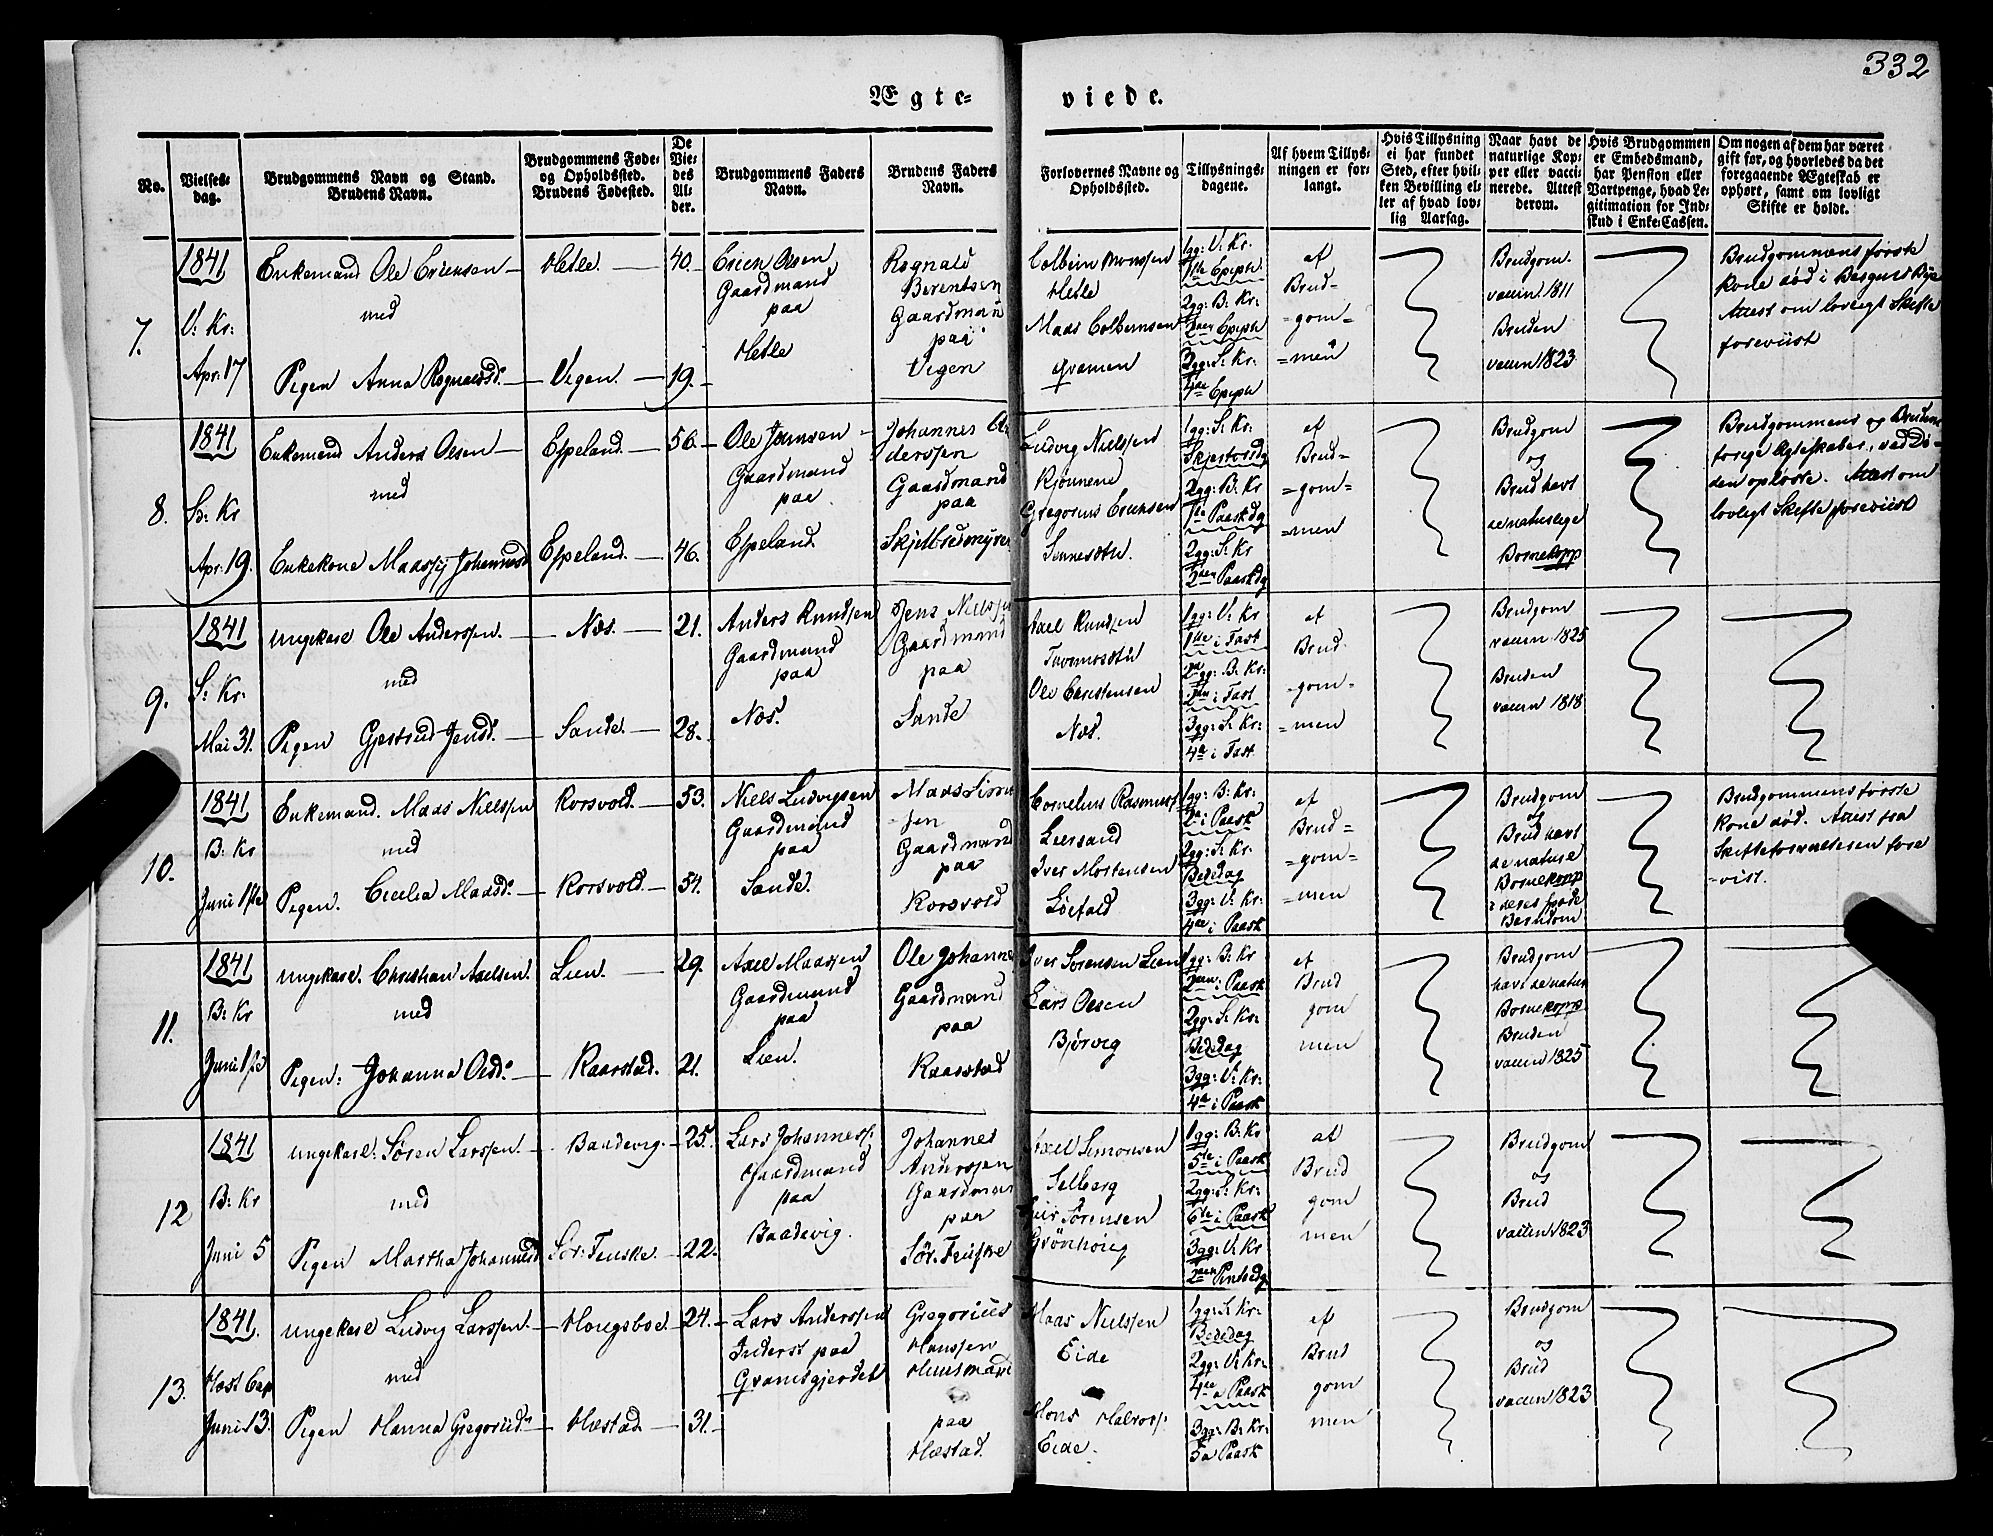 332
Ægte- viede.
No.
Vielses-
dag.
Brudgommens Navn og Stand.
Brudens Navn.
Brudgommens Føde-
og Opholdssted.
Brudens Fødested.
De
Vie-
des
Al-
der.
Brudgommens Faders
Navn.
Brudens Faders
Navn.
Forlovernes Navne og
Opholdssted.
Tillysnings-
dagene.
Af hvem Tillys-
ningen er for-
langt.
Hvis Tillysning
ei har fundet
Sted, efter hvil-
ken Bevilling el-
ler af hvad lov-
lig Aarsag.
Naar havt de
naturlige Kop-
per eller vacci-
nerede. Attest
derom.
Hvis Brudgommen
er Embedsmand,
har Pension eller
Vartpenge, hvad Le-
gitimation for Ind-
skud i Enke-Cassen.
Om nogen af dem har været
gift før, og hvorledes da det
foregaaende Ægteskab er
ophørt, samt om lovligt
Skifte er holdt.
7.
1841
V: Kr:
Apr: 17
Enkemand Ole Ericksen
med
Pigen Anna Rognaldsd.
Hetle
Vegen.
40.
19.
Erich Olsen
Gaardmand
paa
Hetle
Rognald
Berentsen
Gaardmand
paa
Vegen
Colbein Monssen
Hetle
Maas Colbeinsen
Qvamen
1gg: V: Kr.
1ste Epiph.
2gg: B: Kr:
2den Epiph
3gg: S: Kr:
4de Epiph
af
Brud=
=gom=
=men
Brudgom.
vaccin. 1811
Bruden
vaccin 1823.
Brudgommens første
Kone død i Bergens Bye
Attest om lovligt Skifte
foreviist
8.
1841
S: Kr
Apr: 19.
Enkemand Anders Olsen
med
Enkekone Maassy Johannesd
Espeland
Espeland.
56.
46.
Ole Jonssen
Gaardmand
paa
Espeland
Johannes An
derssen
Gaardmand
paa
Skjelbredmyren
Ludvig Nielssen
Gregorius Ericksen
1gg: S: Kr.
Skjertorsdg
2gg: B: Kr
1ste Paaskdg
2gg: S: Kr
2den Paaskdg
af
Brud=
=gom=
=men
Brudgom
og
Brud havt
de naturlige
Bornekopp
Brudgommens og Brudens
forige Ægteskaber, ved Dø-
den opløste. Attest om
lovligt Skifte foreviist
9.
1841
S: Kr:
Mai 31.
ungekarl Ole Anderssen.
med
Pigen Gjertrud Jensd.
Næs.
Sande.
21.
28.
Anders Knudssen
Gaardmand
paa
Næs.
Jens Nielssen
Gaardmand
paa
Sande
Axel Knudsen
Ole Christensen
Næs.
1gg: V: Kr
1ste i Fast
2gg: B: Kr.
2den i Fast
3gg: S: Kr:
4de i Fast
af
Brud.
=gom=
=men
Brudgom
vaccin. 1825
Bruden
vaccin 1818
10.
1841
B: Kr
Juni 1ste
Enkemand. Maas Nielssen
med
Pigen. Cecilia Maasd.
Korsvold.
Korsvold.
53.
54.
Niels Ludvigsen
Gaardmand
paa
Sande.
Maas Simon
sen
Gaardmand
paa
Korsvold
Cornelius Rasmuss
Leersand
Iver Mortensen
1gg: B: Kr:
2den i Paask
2gg: S: Kr.
Bededag
3gg: V: Kr:
4de i Paask
af
Brud=
=gom=
=men
Brudgom
og
Brud havt
de naturl
Bornekopp
i deres spæde
Barndom
Brudgommens første
Kone død. Attest fra
Skifteforvaltelsen fore
=vist.
11.
1841
B: Kr
Juni 1ste
ungekarl. Christian Axelsen.
med
Pigen: Johanna Olsd.
Lien.
Raarstad.
29.
21.
Axel Maassen
Gaardmand
paa
Lien.
Ole Johannes
Gaardmand
paa
Raarstad
Iver Sørensen Lien
Lars Olsen
Bjørvig
1gg: B: Kr
2den i Paask
2gg: S: Kr:
Bededag
3gg: V: Kr:
4de i Paask
af
Brud
gom
men
Brudgom
havt de natur
Bornekopp
Bruden
vaccin 1825
12
1841
B: Kr
Juni 5
ungekarl. Søren Larssen.
med
Pigen Martha Johannesd
Baadevig.
Sör. Feuske.
25.
22.
Lars Johanness:
Gaardmand
paa
Baadevig.
Johannes
Anderssen
Gaardman
paa
Sör. Feuske
Axel Simonsen
Selberg
Sörensen
1gg: B: Kr
5te i Paask
2gg: S: Kr:
6te i Paask
3gg: V: Kr
2den Pintsdg
af
Brud
gom
men
Brudgom
og
Brud
vaccin 1823
13.
1841.
Juni 13.
ungekarl Ludvig Larssen.
med
Pigen Hanna Gregoriid.
Hougsboe.
Hæstad
24.
31.
Lars Anderssen
Inderst paa
Gramsgjerdet
Gregorius
Hanssen
Huusmand
paa
Hæstad.
Maas Nielssen
Eide
Mons
Eide.
1gg: S: Kr:
Bededag
2gg: V: Kr:
4de a Paask
3gg: B: Kr:
5 a Paask
af
Brud
gom
men
Brudgom
og
Brud
vaccin 1823